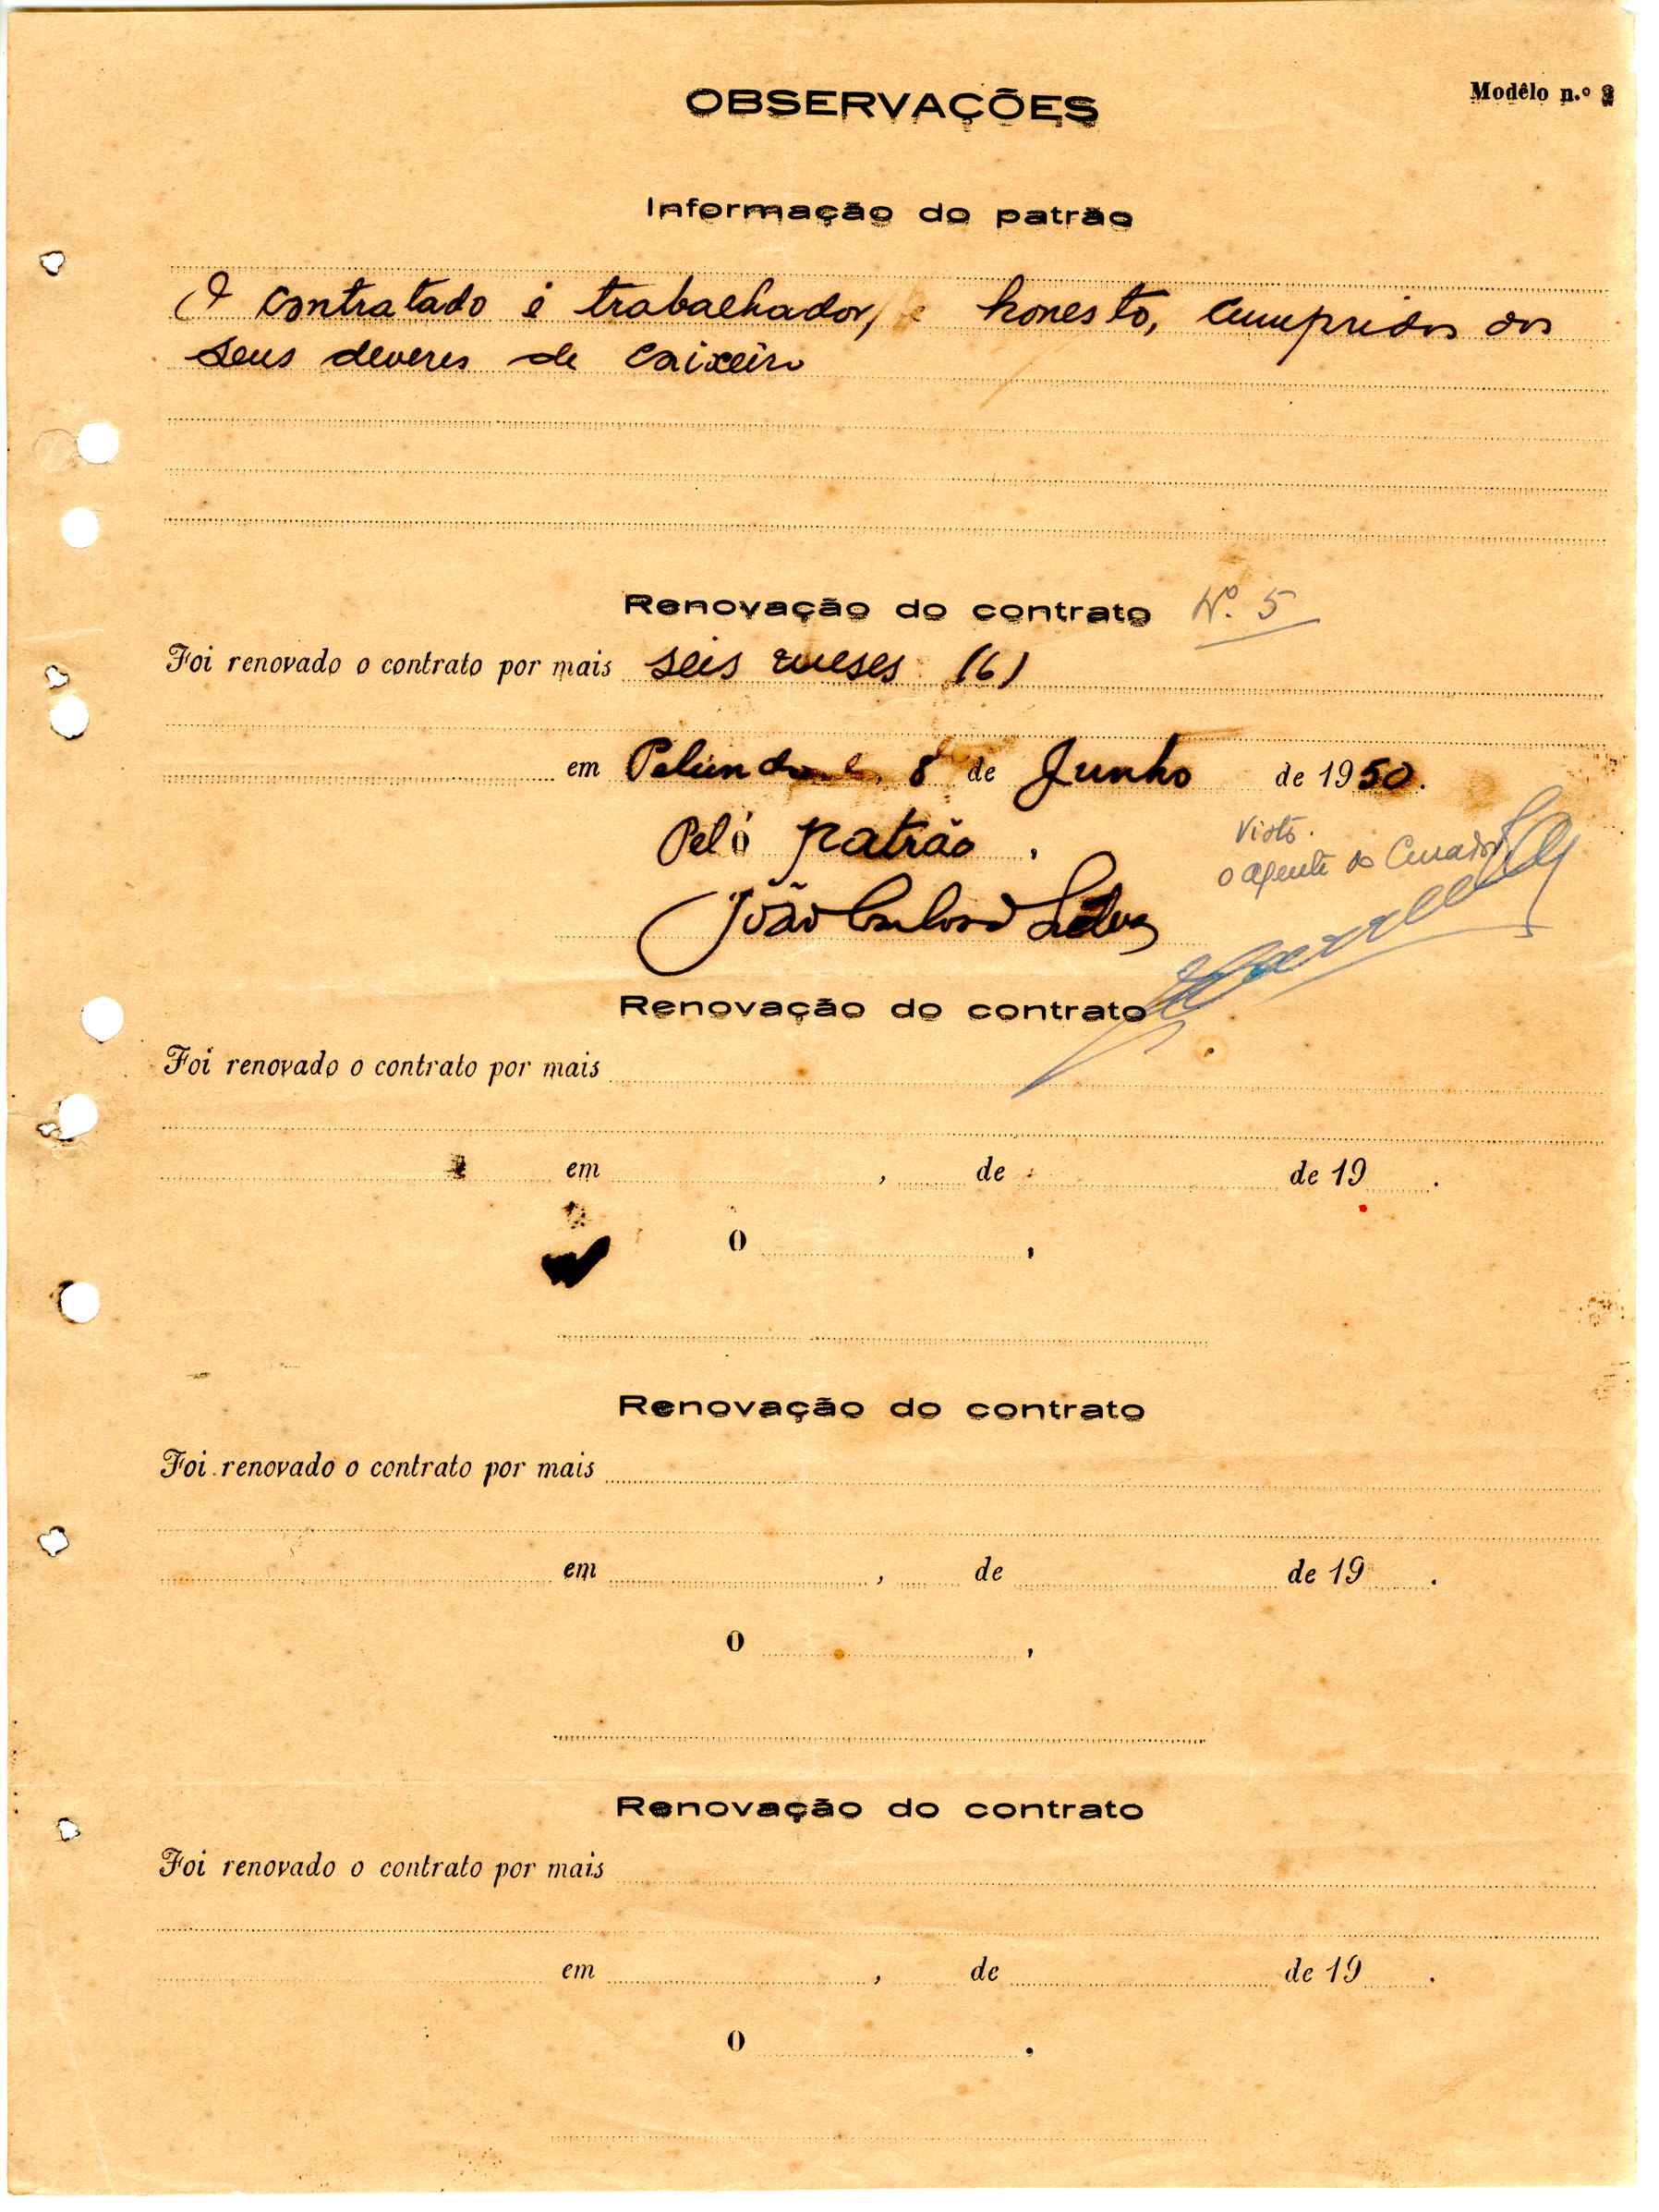 OBSERVAÇÕES
Modêlo n.º 2
Informação do patrão
O contratado é trabalhador, e honesto, cumpridor dos
seus deveres de caixeiro
Renovação do contrato Nº. 5
Foi renovado o contrato por mais seis meses (6)
em Pelundo 8 de Junho de 1950.
Pelo patrão,
Visto.
O agente do Curador
João Silva
Renovação do contrato
Foi renovado o contrato por mais
em , de de 19 .
O ,
Renovação do contrato
Foi renovado o contrato por mais
em , de de 19 .
O ,
Renovação do contrato
Foi renovado o contrato por mais
em , de de 19 .
O .